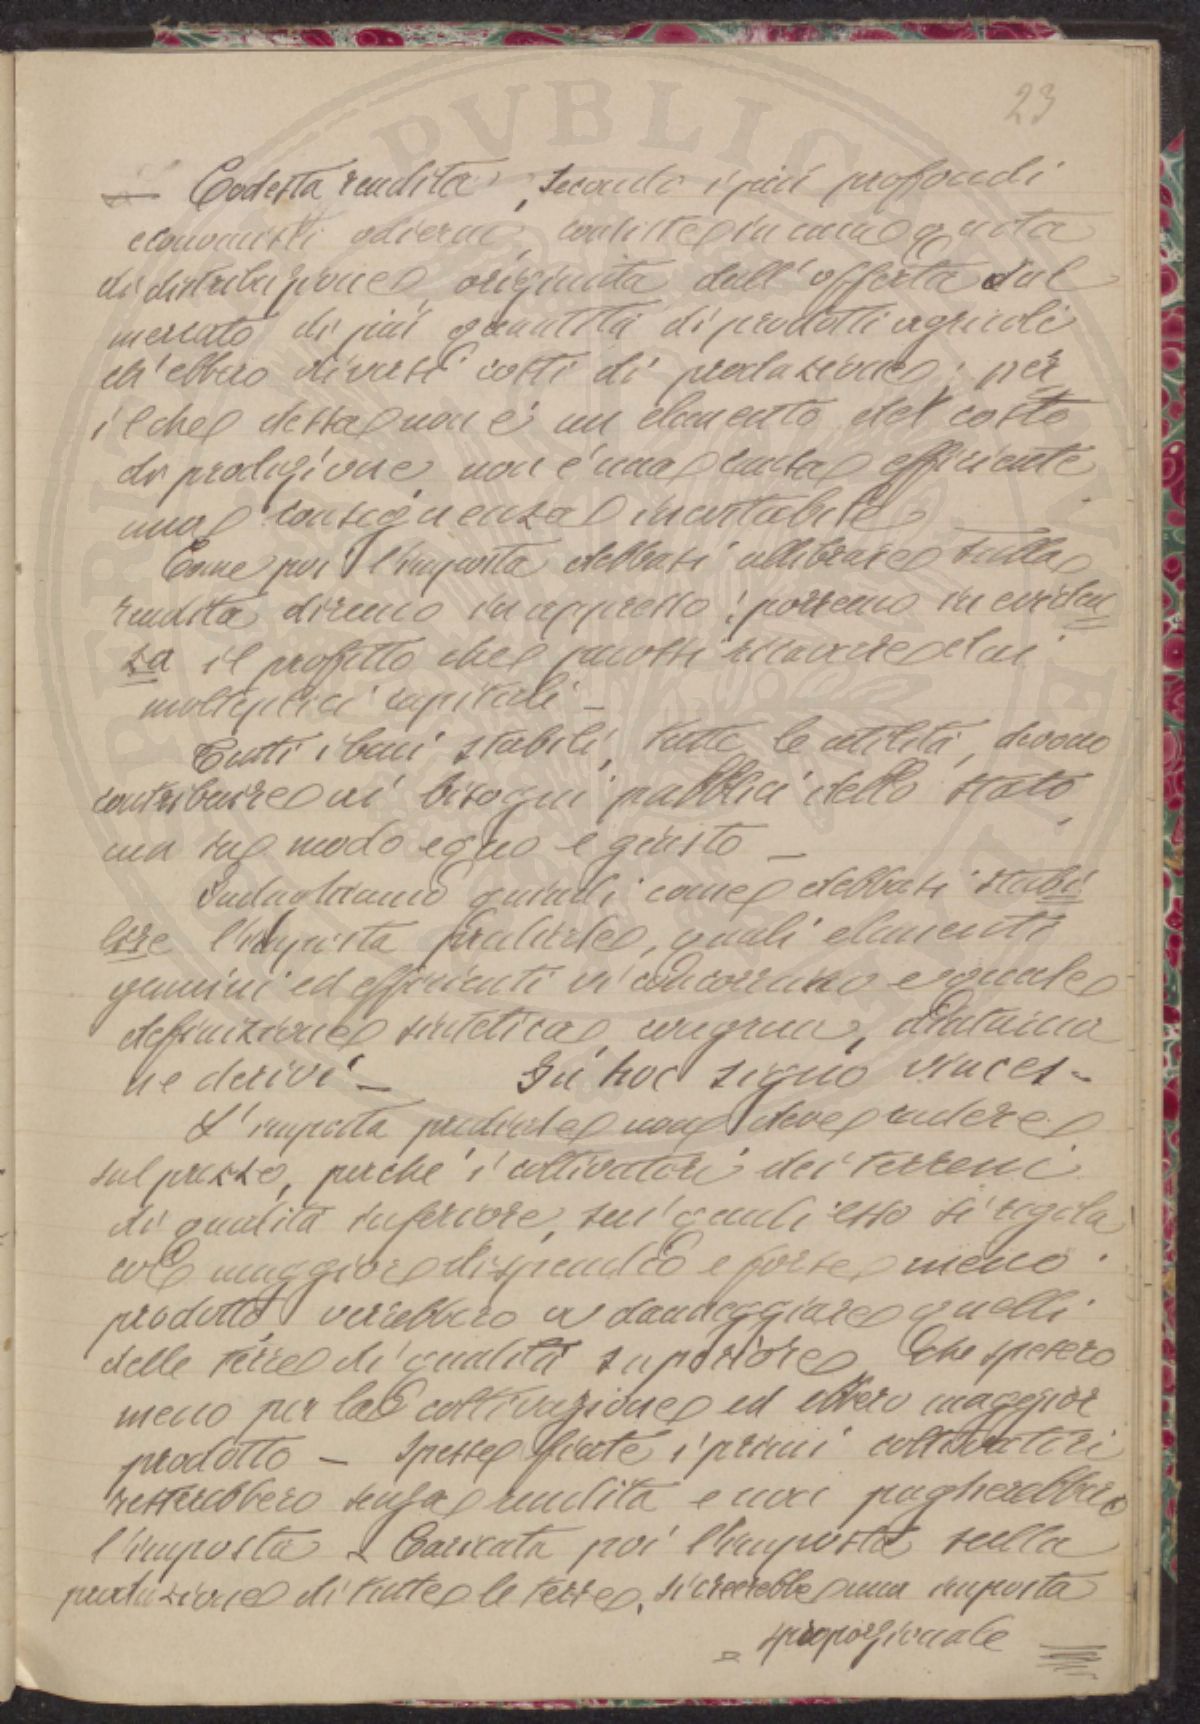 23
— Codesta rendita, secondo i più profondi
economisti odierni, consiste in una quota
di distribuzione, originata dall'offerta sul
mercato di più quantità di prodotti agricoli
ch'ebbero diversi costi di produzione; per
il che dessa non è un elemento del costo
di produzione, non è una causa efficiente
ma conseguenza inevitabile
Come poi l'imposta debbasi allibrare sulla
rendita diremo in appresso: porremo in eviden
za il profitto che puossi ricavare dai
molteplici capitali —
Tutti i beni stabili, tutte le utilità, devono
contribuire ai bisogni pubblici dello stato,
ma in modo equo e giusto —
Indaghiamo quindi come debbasi stabi
lire l'imposta prediale, quali elementi
genuini ed efficienti vi concorrano e quale
definizione sintetica, congrua,
ne derivi — In hoc signo vinces —
L'imposta prediale non deve cadere
sul prezzo, perchè i coltivatori dei terreni
di qualità inferiore, sui quali esso si regola
col maggiore dispendio e forse meno
prodotto verrebbero a danneggiare quelli
delle terre di qualità superiore, che spesero
meno per la coltivazione ed ebbero maggior
prodotto — Spesse fiate i primi coltivatori
resterebbero senza rendita e non pagherebbero
l'imposta — Caricata poi l'imposta sulla
produzione di tutte le terre, si creerebbe una imposta
sproporzionale